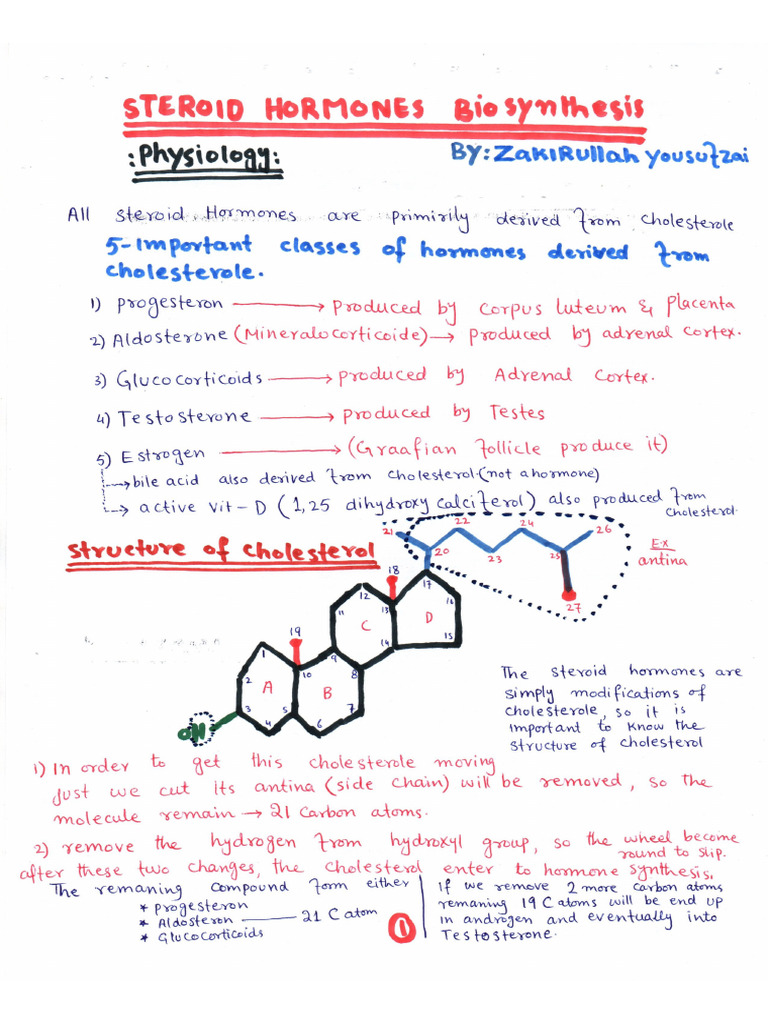 STEROID HORMONES Biosynthesis
:Physiology:
BY: ZAKIRUllah yousufzai
All steroid Hormones are primirily derived from cholesterole
5-Important classes of hormones derived from
cholesterole.
1) progesteron → produced by corpus luteum & placenta
2) Aldosterone (Mineralocorticoide) → produced by adrenal cortex.
3) Glucocorticoids → produced by Adrenal cortex.
4) Testosterone → produced by Testes
5) Estrogen → (Graafian follicle produce it)
→ bile acid also derived from cholesterol.(not a hormone)
→ active vit-D (1,25 dihydroxy calciferol) also produced from
cholesterol.
structure of cholesterol
21 22 24 26
20 23 25
27
E.x
antina
18
12 17 16
11 13
C D
14 15
19
1 9
2 10 8
A B
3 5 7
4 6
OH
The steroid hormones are
simply modifications of
cholesterole, so it is
important to know the
structure of cholesterol
1) In order to get this cholesterole moving
Just we cut its antina (side chain) will be removed, so the
molecule remain → 21 carbon atoms.
2) remove the hydrogen from hydroxyl group, so the wheel become
round to slip.
after these two changes, the cholesterol enter to hormone synthesis.
The remaning compound form either
* progesteron
* Aldosteron — 21 C atom
* Glucocorticoids
1
If we remove 2 more carbon atoms
remaning 19 C atoms will be end up
in androgen and eventually into
Testosterone.